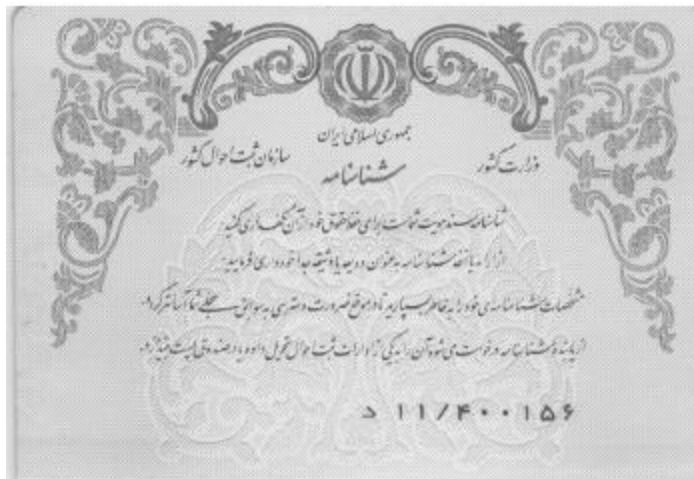 جمهوری اسلامی ایران
وزارت کشور
سازمان ثبت احوال کشور
شناسنامه
شناسنامه سند هویت شماست برای حفظ حقوق خود از آن نگهداری کنید.
از ارائه یا اخذ شناسنامه به عنوان ودیعه یا وثیقه جداً خودداری فرمایید.
مشخصات شناسنامه‌ای خود را به خاطر بسپارید تا در موقع ضرورت دسترسی به سوابق سجلی شما آسانتر گردد.
از یابنده شناسنامه درخواست می شود آن را به یکی از ادارات ثبت احوال تحویل داده یا در صندوق پست بیندازد.
د ۱۱/۴۰۰۱۵۶